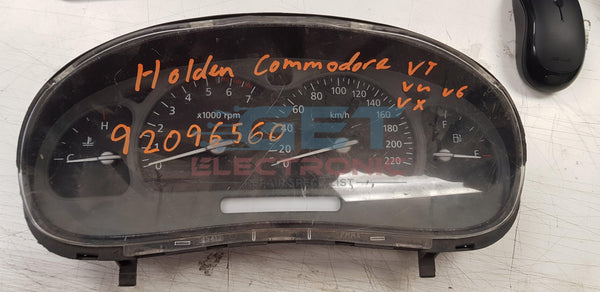 Holden Commodore VT
VU V6
VX
92096560
x1000 rpm
km/h
0 1 2 3 4 5 6 7
0 20 40 60 80 100 120 140 160 180 200 220
H
F
E
GET
ELECTRONIC